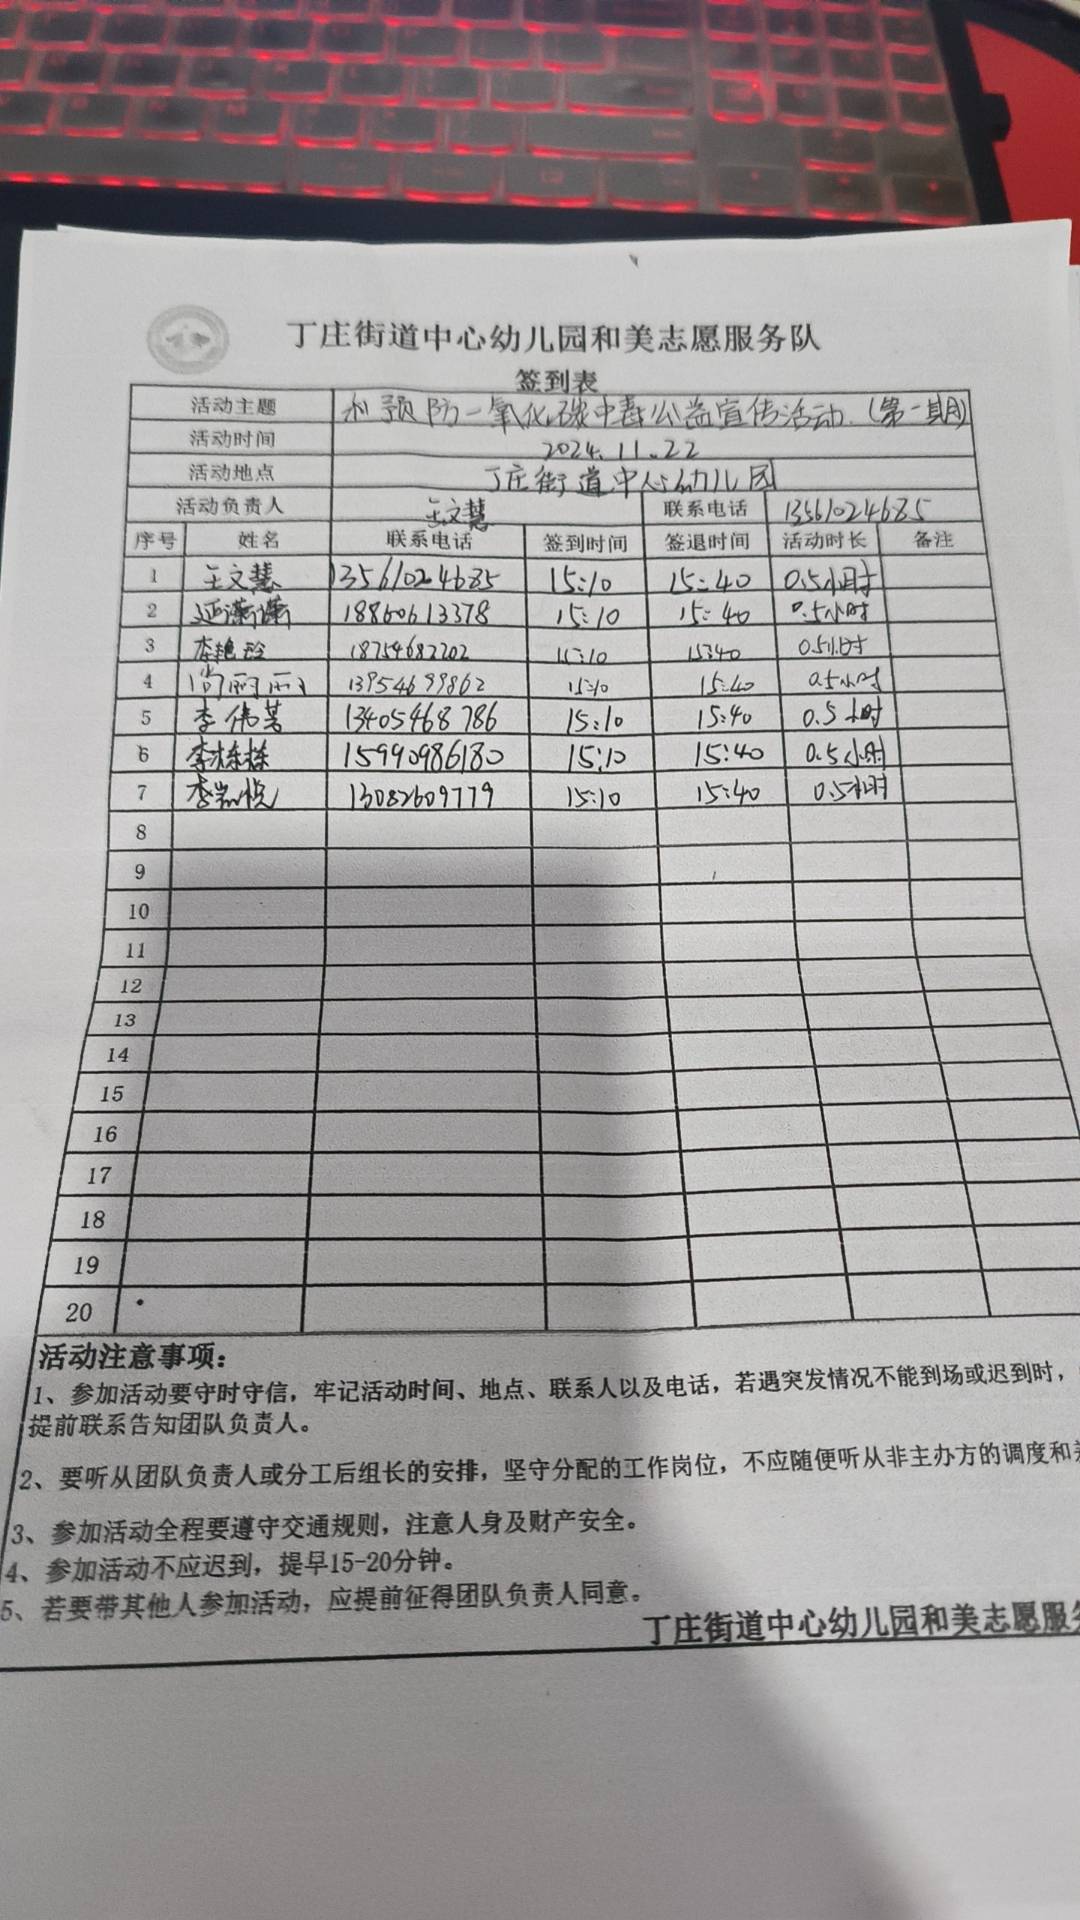 丁庄街道中心幼儿园和美志愿服务队
签到表
活动主题 预防一氧化碳中毒公益宣传活动.(第一期)
活动时间 2024.11.22
活动地点 丁庄街道中心幼儿园
活动负责人 王文慧 联系电话 13561024685
序号 姓名 联系电话 签到时间 签退时间 活动时长 备注
1 王文慧 13561024685 15:10 15:40 0.5小时
2 延潇潇 18860613378 15:10 15:40 0.5小时
3 李艳玲 18754682202 15:10 15:40 0.5小时
4 尚丽丽 13954699862 15:10 15:40 0.5小时
5 李伟 13405468786 15:10 15:40 0.5小时
6 李栋栋 15990986180 15:10 15:40 0.5小时
7 李悦 13082609779 15:10 15:40 0.5小时
8
9
10
11
12
13
14
15
16
17
18
19
20
活动注意事项：
1、参加活动要守时守信，牢记活动时间、地点、联系人以及电话，若遇突发情况不能到场或迟到时，
提前联系告知团队负责人。
2、要听从团队负责人或分工后组长的安排，坚守分配的工作岗位，不应随便听从非主办方的调度和
3、参加活动全程要遵守交通规则，注意人身及财产安全。
4、参加活动不应迟到，提早15-20分钟。
5、若要带其他人参加活动，应提前征得团队负责人同意。
丁庄街道中心幼儿园和美志愿服